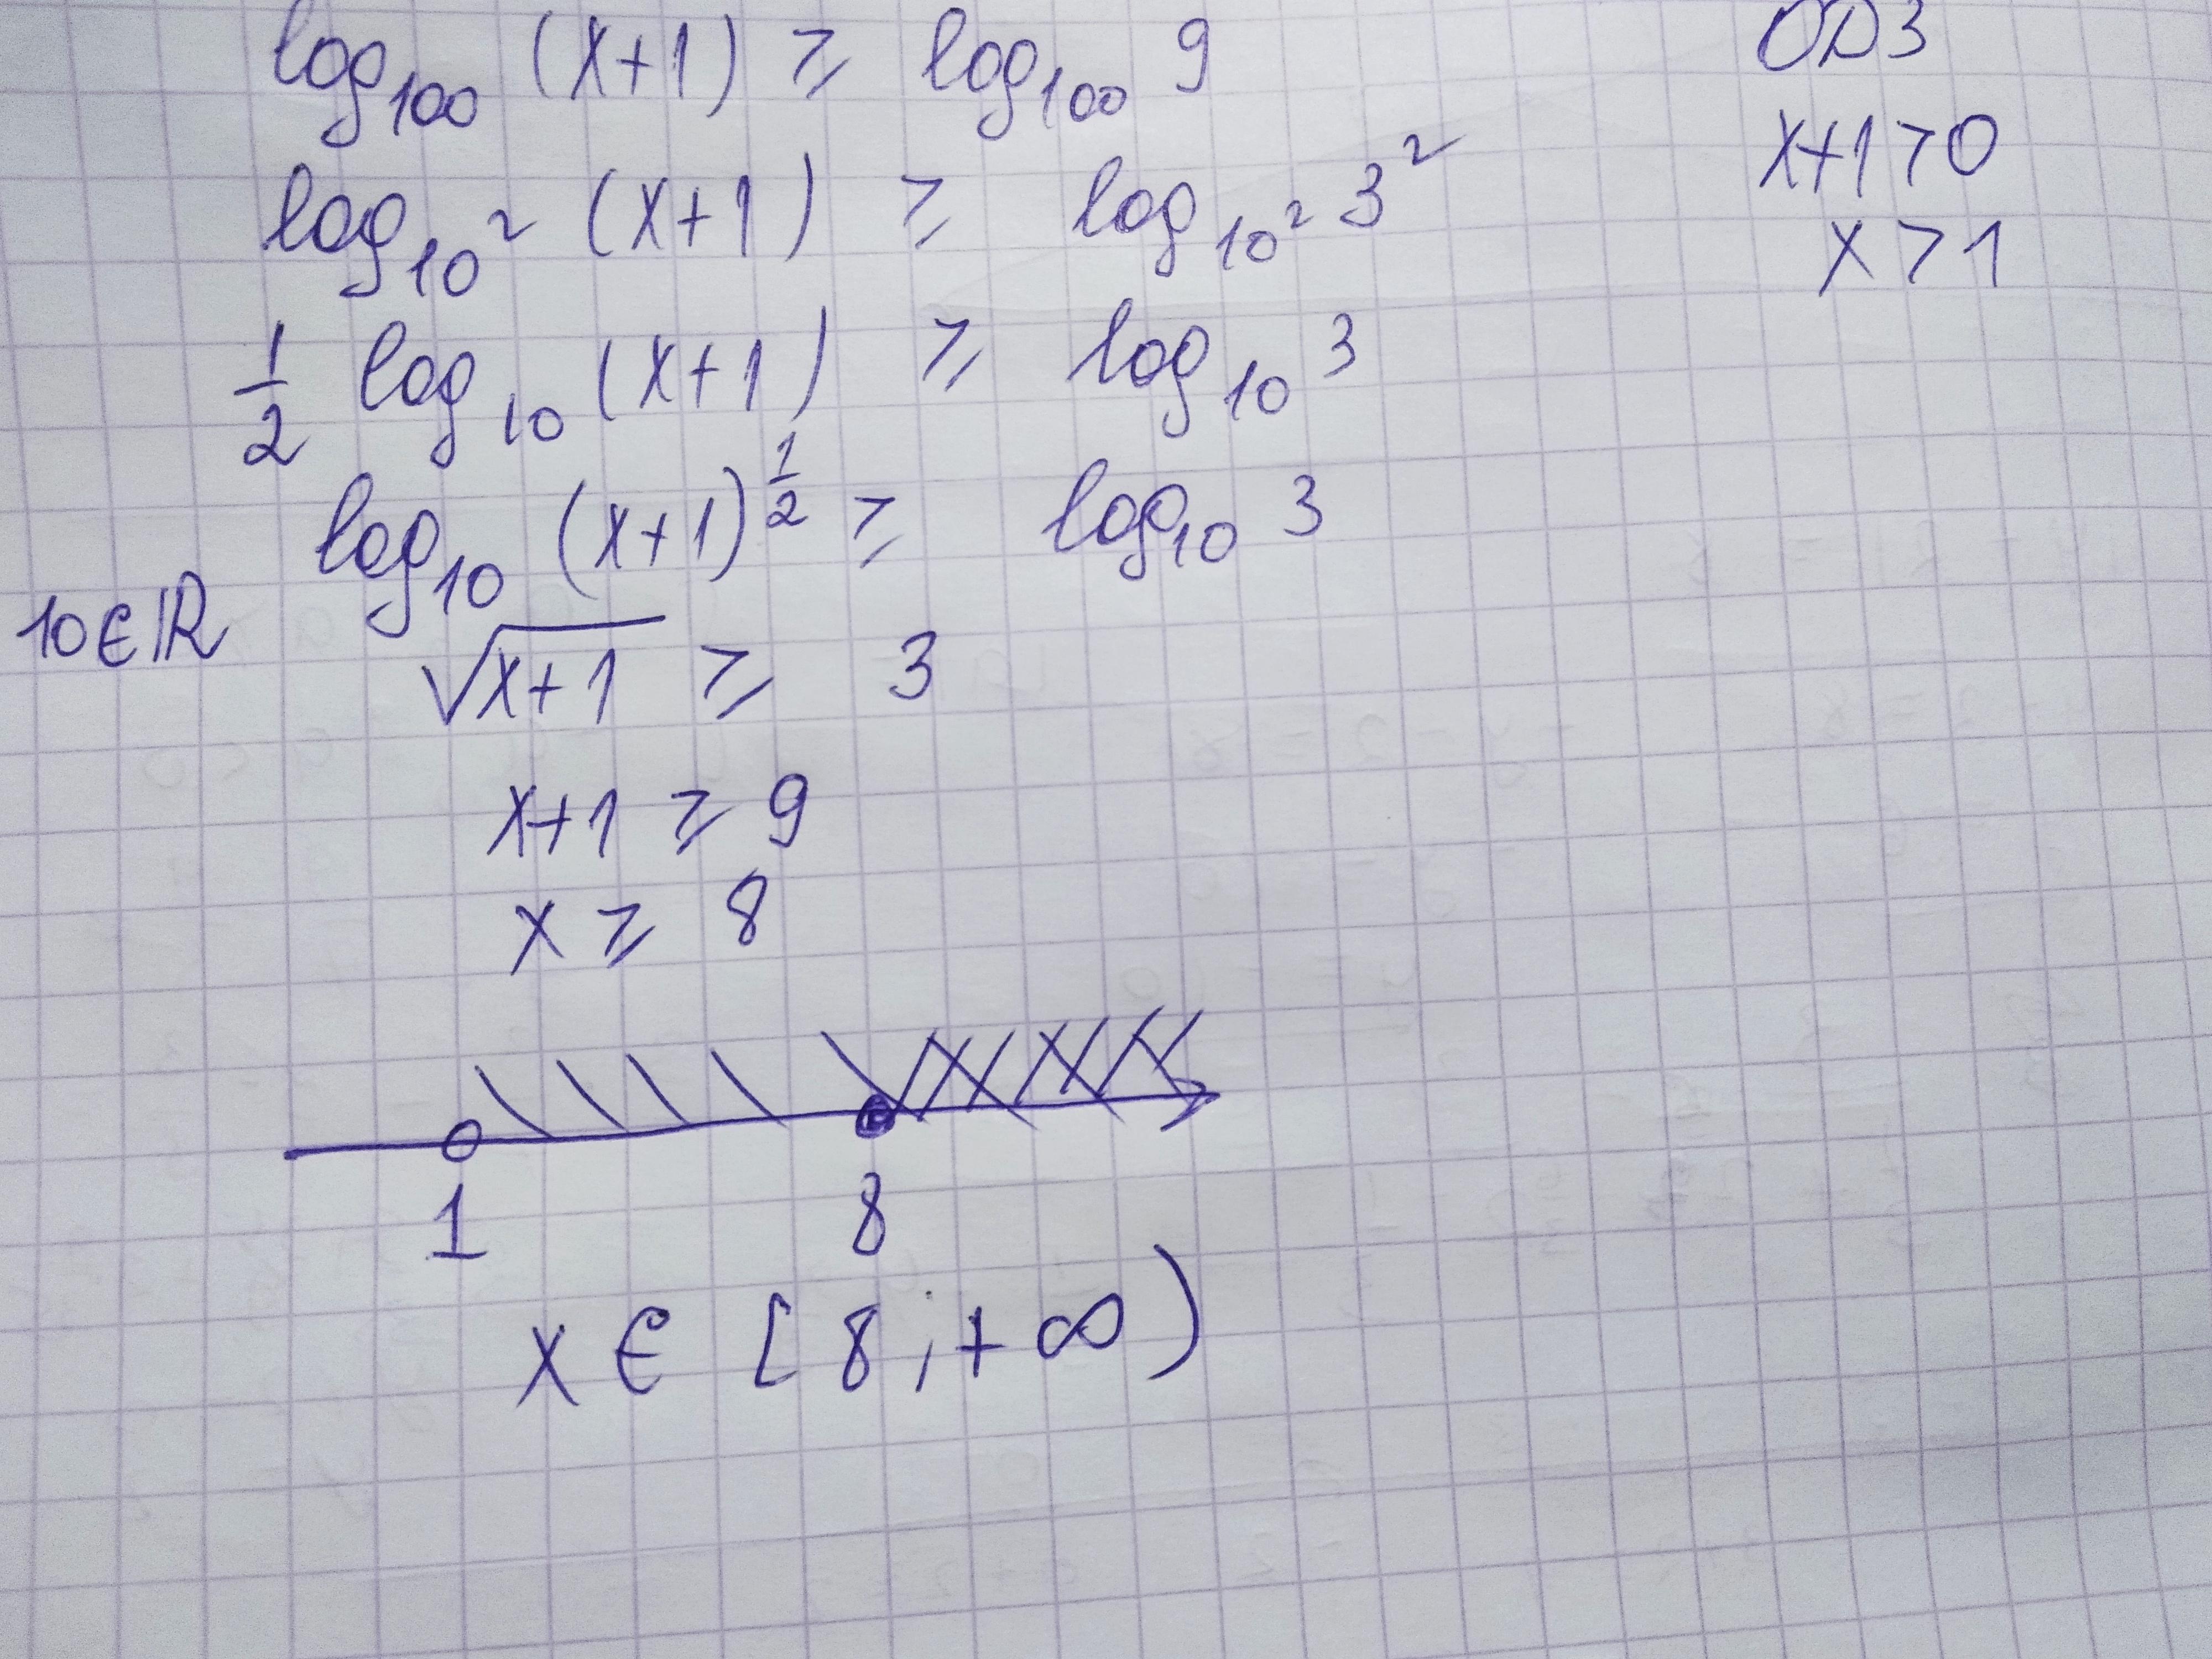 log₁₀₀ (x+1) ⩾ log₁₀₀ 9
ОДЗ
log₁₀² (x+1) ⩾ log₁₀² 3²
x+1>0
x>1
1/2 log₁₀ (x+1) ⩾ log₁₀ 3
log₁₀ (x+1)^(1/2) ⩾ log₁₀ 3
10∈ℝ
√(x+1) ⩾ 3
x+1 ⩾ 9
x ⩾ 8
1 8
x ∈ [8;+∞)